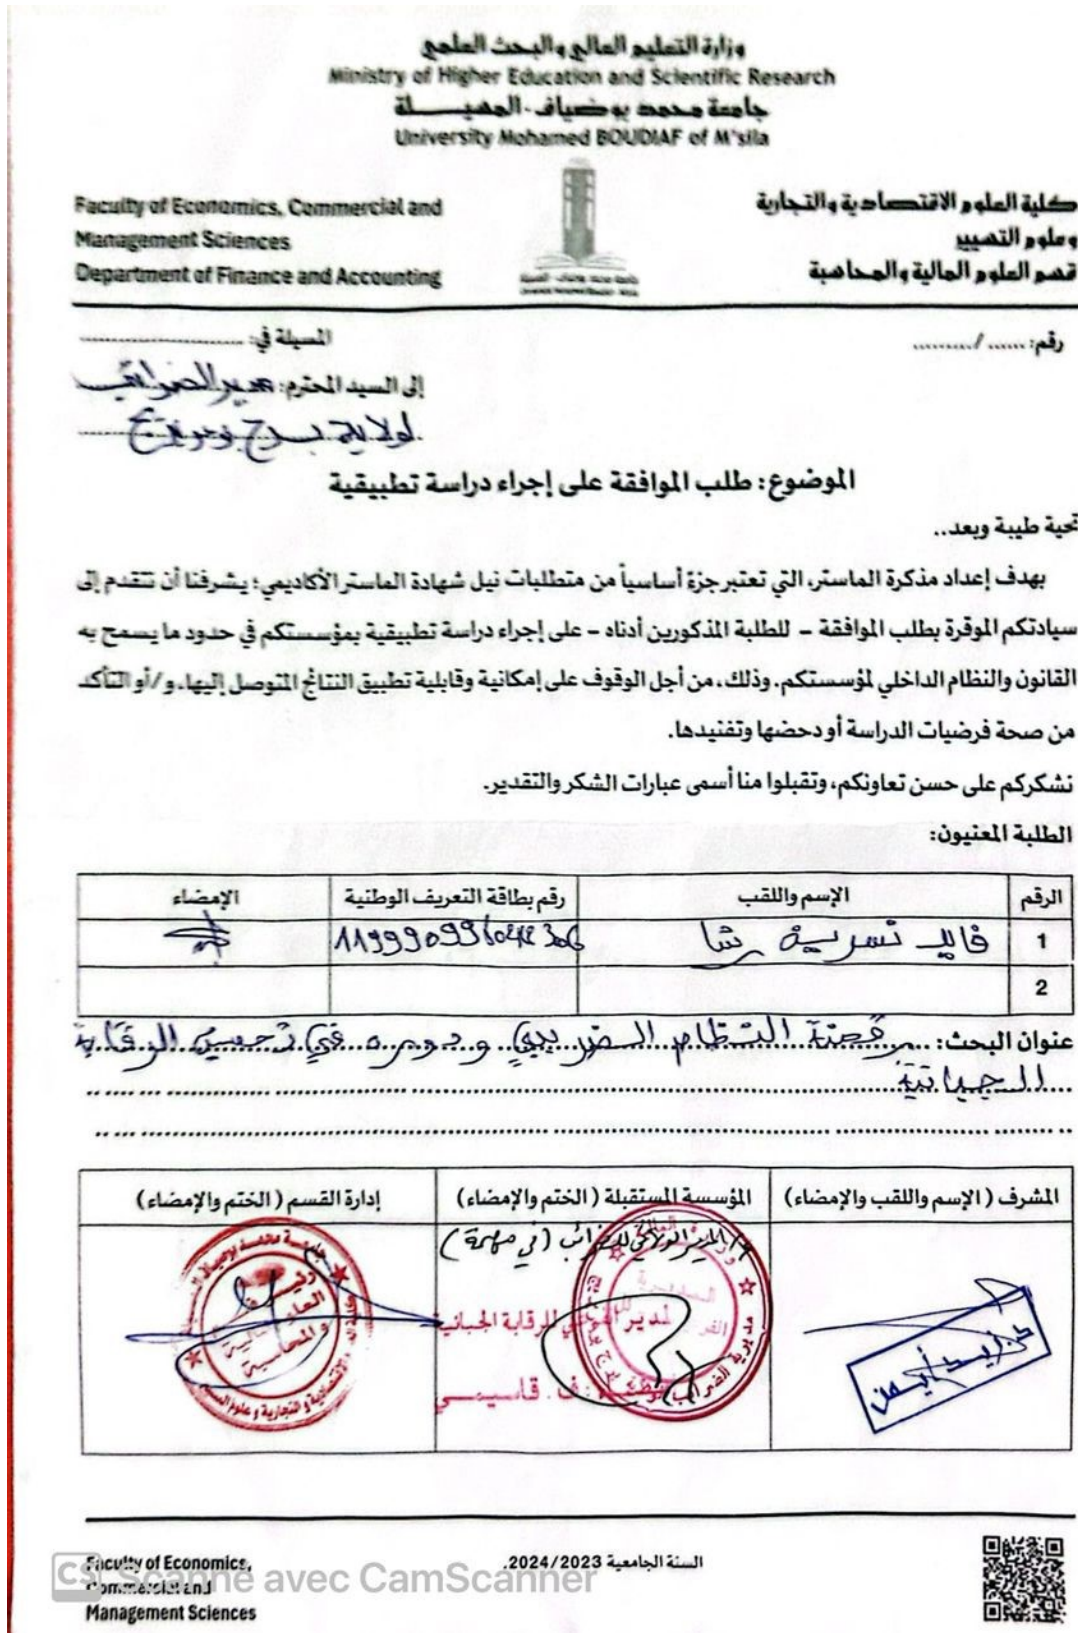 وزارة التعليم العالي والبحث العلمي
Ministry of Higher Education and Scientific Research
جامعة محمد بوضياف - المسيـــلة
University Mohamed BOUDIAF of M'sila
Faculty of Economics, Commercial and
Management Sciences
Department of Finance and Accounting
كلية العلوم الاقتصادية والتجارية
وعلوم التسيير
قسم العلوم المالية والمحاسبة
رقم: ....../.........
المسيلة في: ........................
إلى السيد المحترم: مدير الضرائب
لولاية برج بوعريريج
الموضوع: طلب الموافقة على إجراء دراسة تطبيقية
تحية طيبة وبعد..
بهدف إعداد مذكرة الماستر، التي تعتبر جزءً أساسياً من متطلبات نيل شهادة الماستر الأكاديمي؛ يشرفنا أن نتقدم إلى
سيادتكم الموقرة بطلب الموافقة – للطلبة المذكورين أدناه – على إجراء دراسة تطبيقية بمؤسستكم في حدود ما يسمح به
القانون والنظام الداخلي لمؤسستكم. وذلك، من أجل الوقوف على إمكانية وقابلية تطبيق النتائج المتوصل إليها، و/أو التأكد
من صحة فرضيات الدراسة أو دحضها وتفنيدها.
نشكركم على حسن تعاونكم، وتقبلوا منا أسمى عبارات الشكر والتقدير.
الطلبة المعنيون:
الرقم الإسم واللقب رقم بطاقة التعريف الوطنية الإمضاء
1 رشا
2
عنوان البحث: رقمنة النظام الضريبي ودوره في تحسين الرقابة
الجبائية
المشرف (الإسم واللقب والإمضاء)
المؤسسة المستقبلة (الختم والإمضاء)
إدارة القسم (الختم والإمضاء)
المدير الولائي للضرائب (في مهمة)
المدير الفرعي للرقابة الجبائية
ف. قاسيمي
العلوم المالية
والمحاسبة
مديرية الضرائب
Faculty of Economics,
Commercial and
Management Sciences
السنة الجامعية 2024/2023.
CS Scanné avec CamScanner